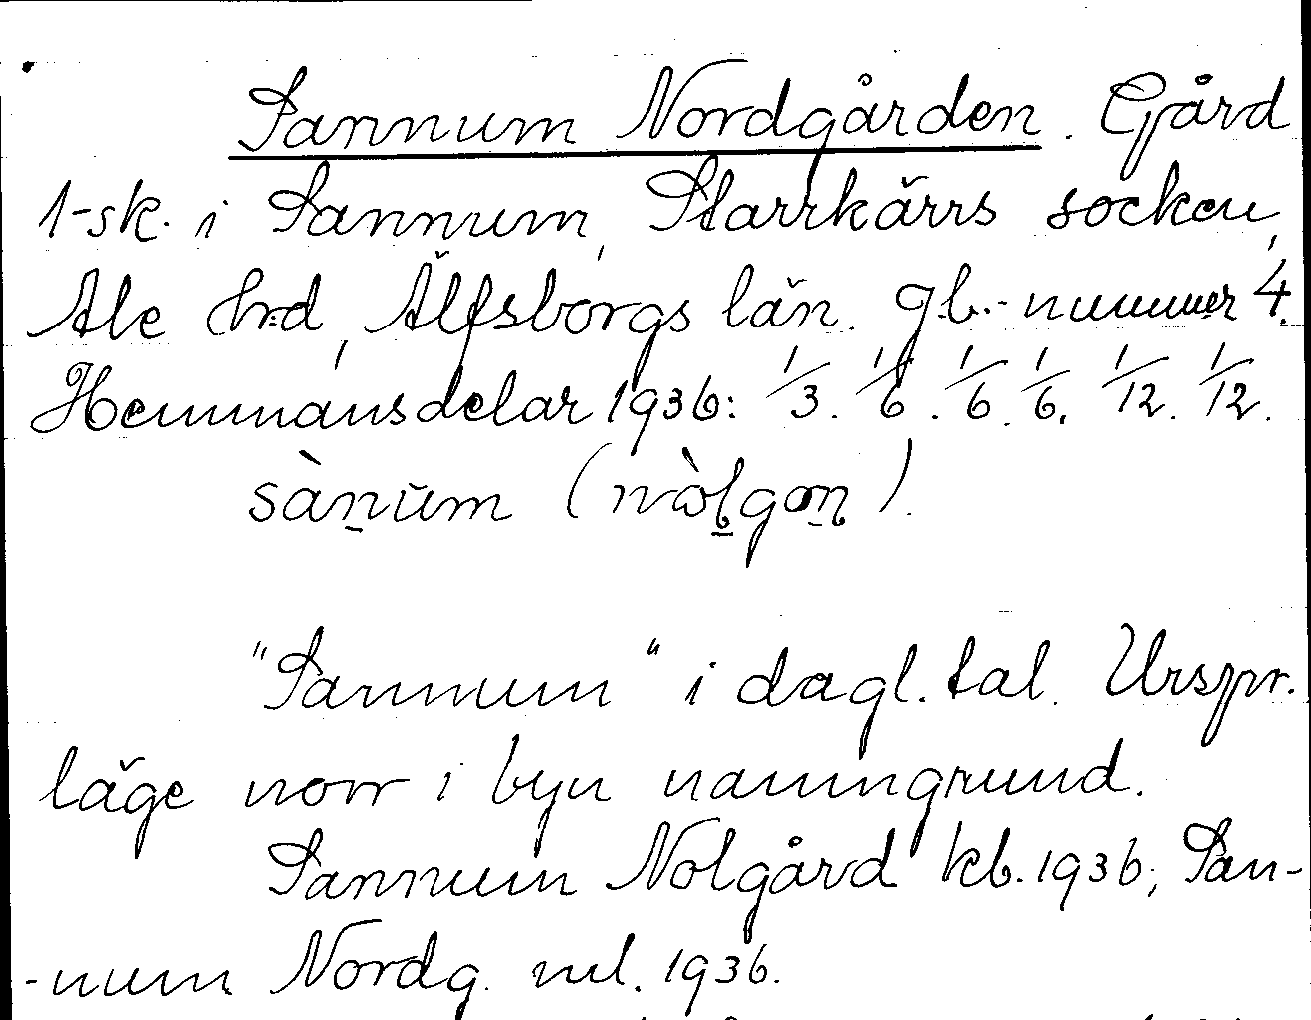 Sannum Nordgården. Gård
1-sk. i Sannum, Starrkärrs socken,
Ale hrd, Älfsborgs län. gb.-nummer 4.
Hemmansdelar 1936: 1/3. 1/6. 1/6. 1/6. 1/12. 1/12.
sànŭm (nòlgon).
"Sannum" i dagl. tal. Urspr.
läge norr i byn namngrund.
Sannum Nolgård kb. 1936; San-
-num Nordg. ml. 1936.